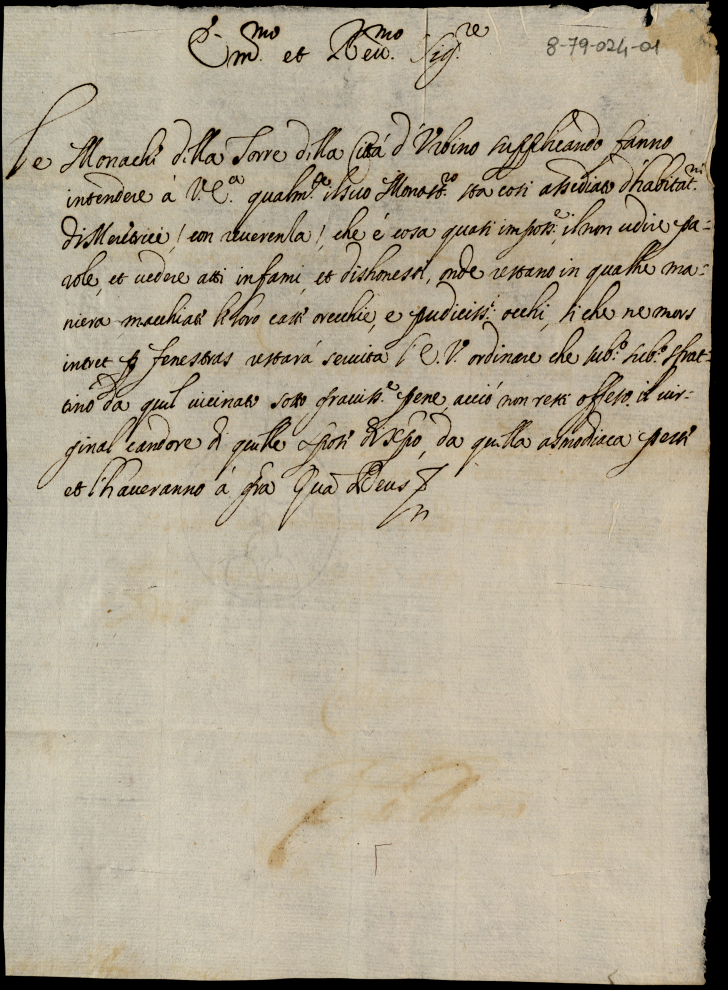 Em.mo et Reu.mo Sig.re
8-79-024-01
Le Monache della Torre della Cittá d'Vrbino supplicando fanno
intendere á V.E.a qualm.te il suo Monast.ro sta cosi assediato d'habitat.ni
di Meretrici (con reuerenza), che é cosa quasi imposs.e il non udire pa=
role, et uedere atti infami, et dishonesti, onde restano in qualche ma=
niera macchiati li loro casti orecchie, e pudiciss.i occhi, si che ne mors
intret p fenestras restará seruita l'E.V. ordinare che sub.o sub.o sfrat=
tino da quel uicinato sotto grauiss.e pene, acció non resti offeso il uir=
ginal candore di quelle spose di Xpo, da quella asmodiaca peste
et l'haueranno á gra Qua Deus